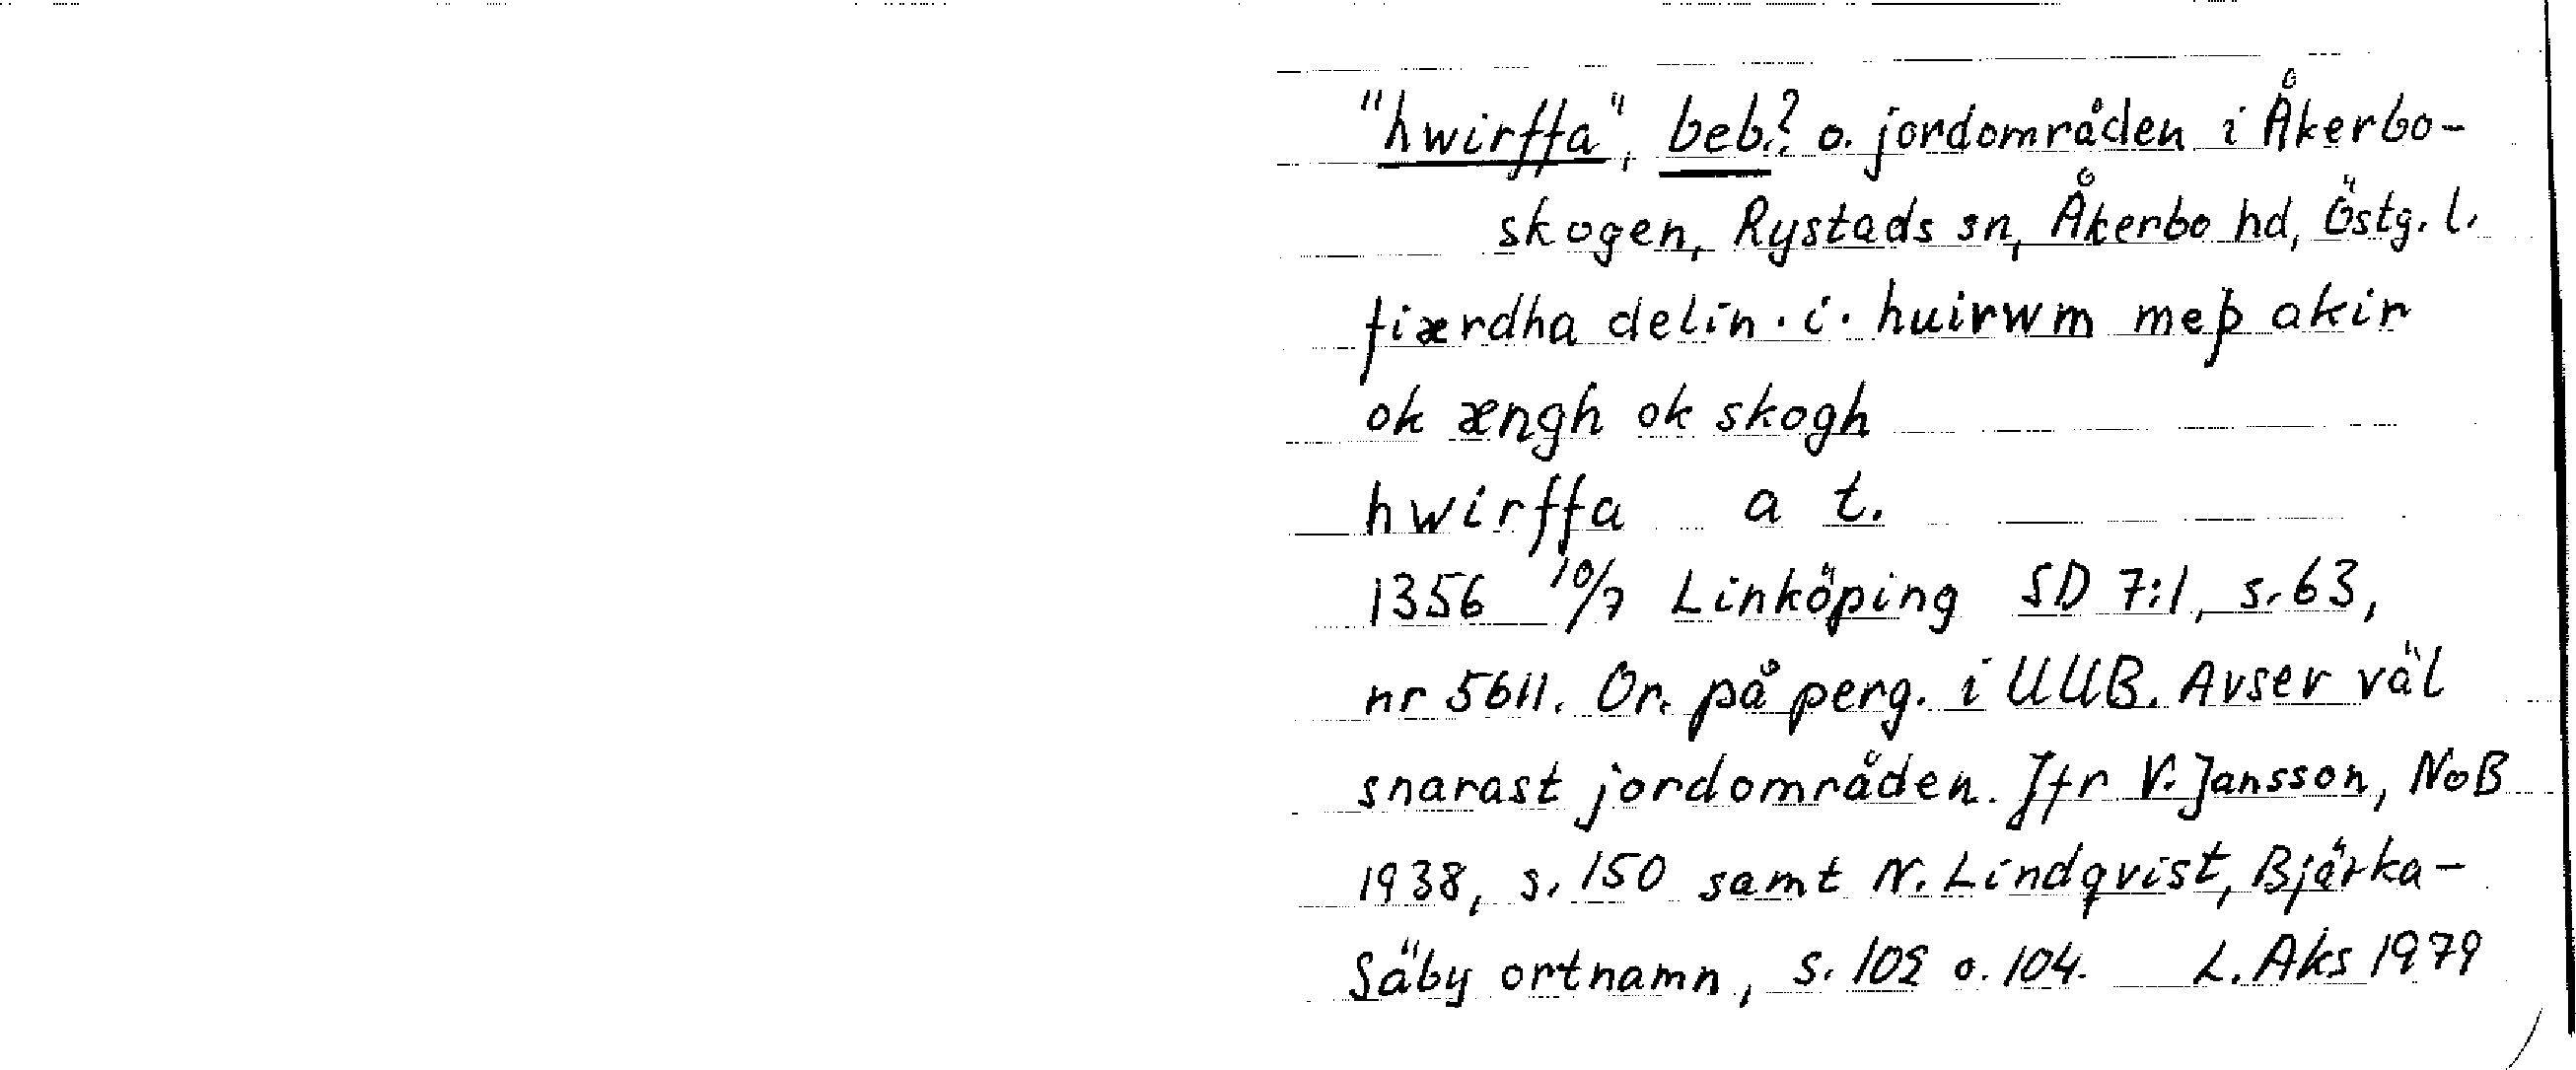 "hwirffa", beb.? o. jordområden i Åkerbo-
skogen, Rystads sn, Åkerbo hd, Östg. l.
fiærdha delin · i · huirwm meþ akir
ok ængh ok skogh
hwirffa a t.
1356 10/7 Linköping SD 7:1, s. 63,
nr 5611. Or. på perg. i UUB. Avser väl
snarast jordområden. Jfr V. Jansson, NoB
1938, s. 150 samt N. Lindqvist, Bjärka-
Säby ortnamn, s. 102 o. 104. L. Aks 1979